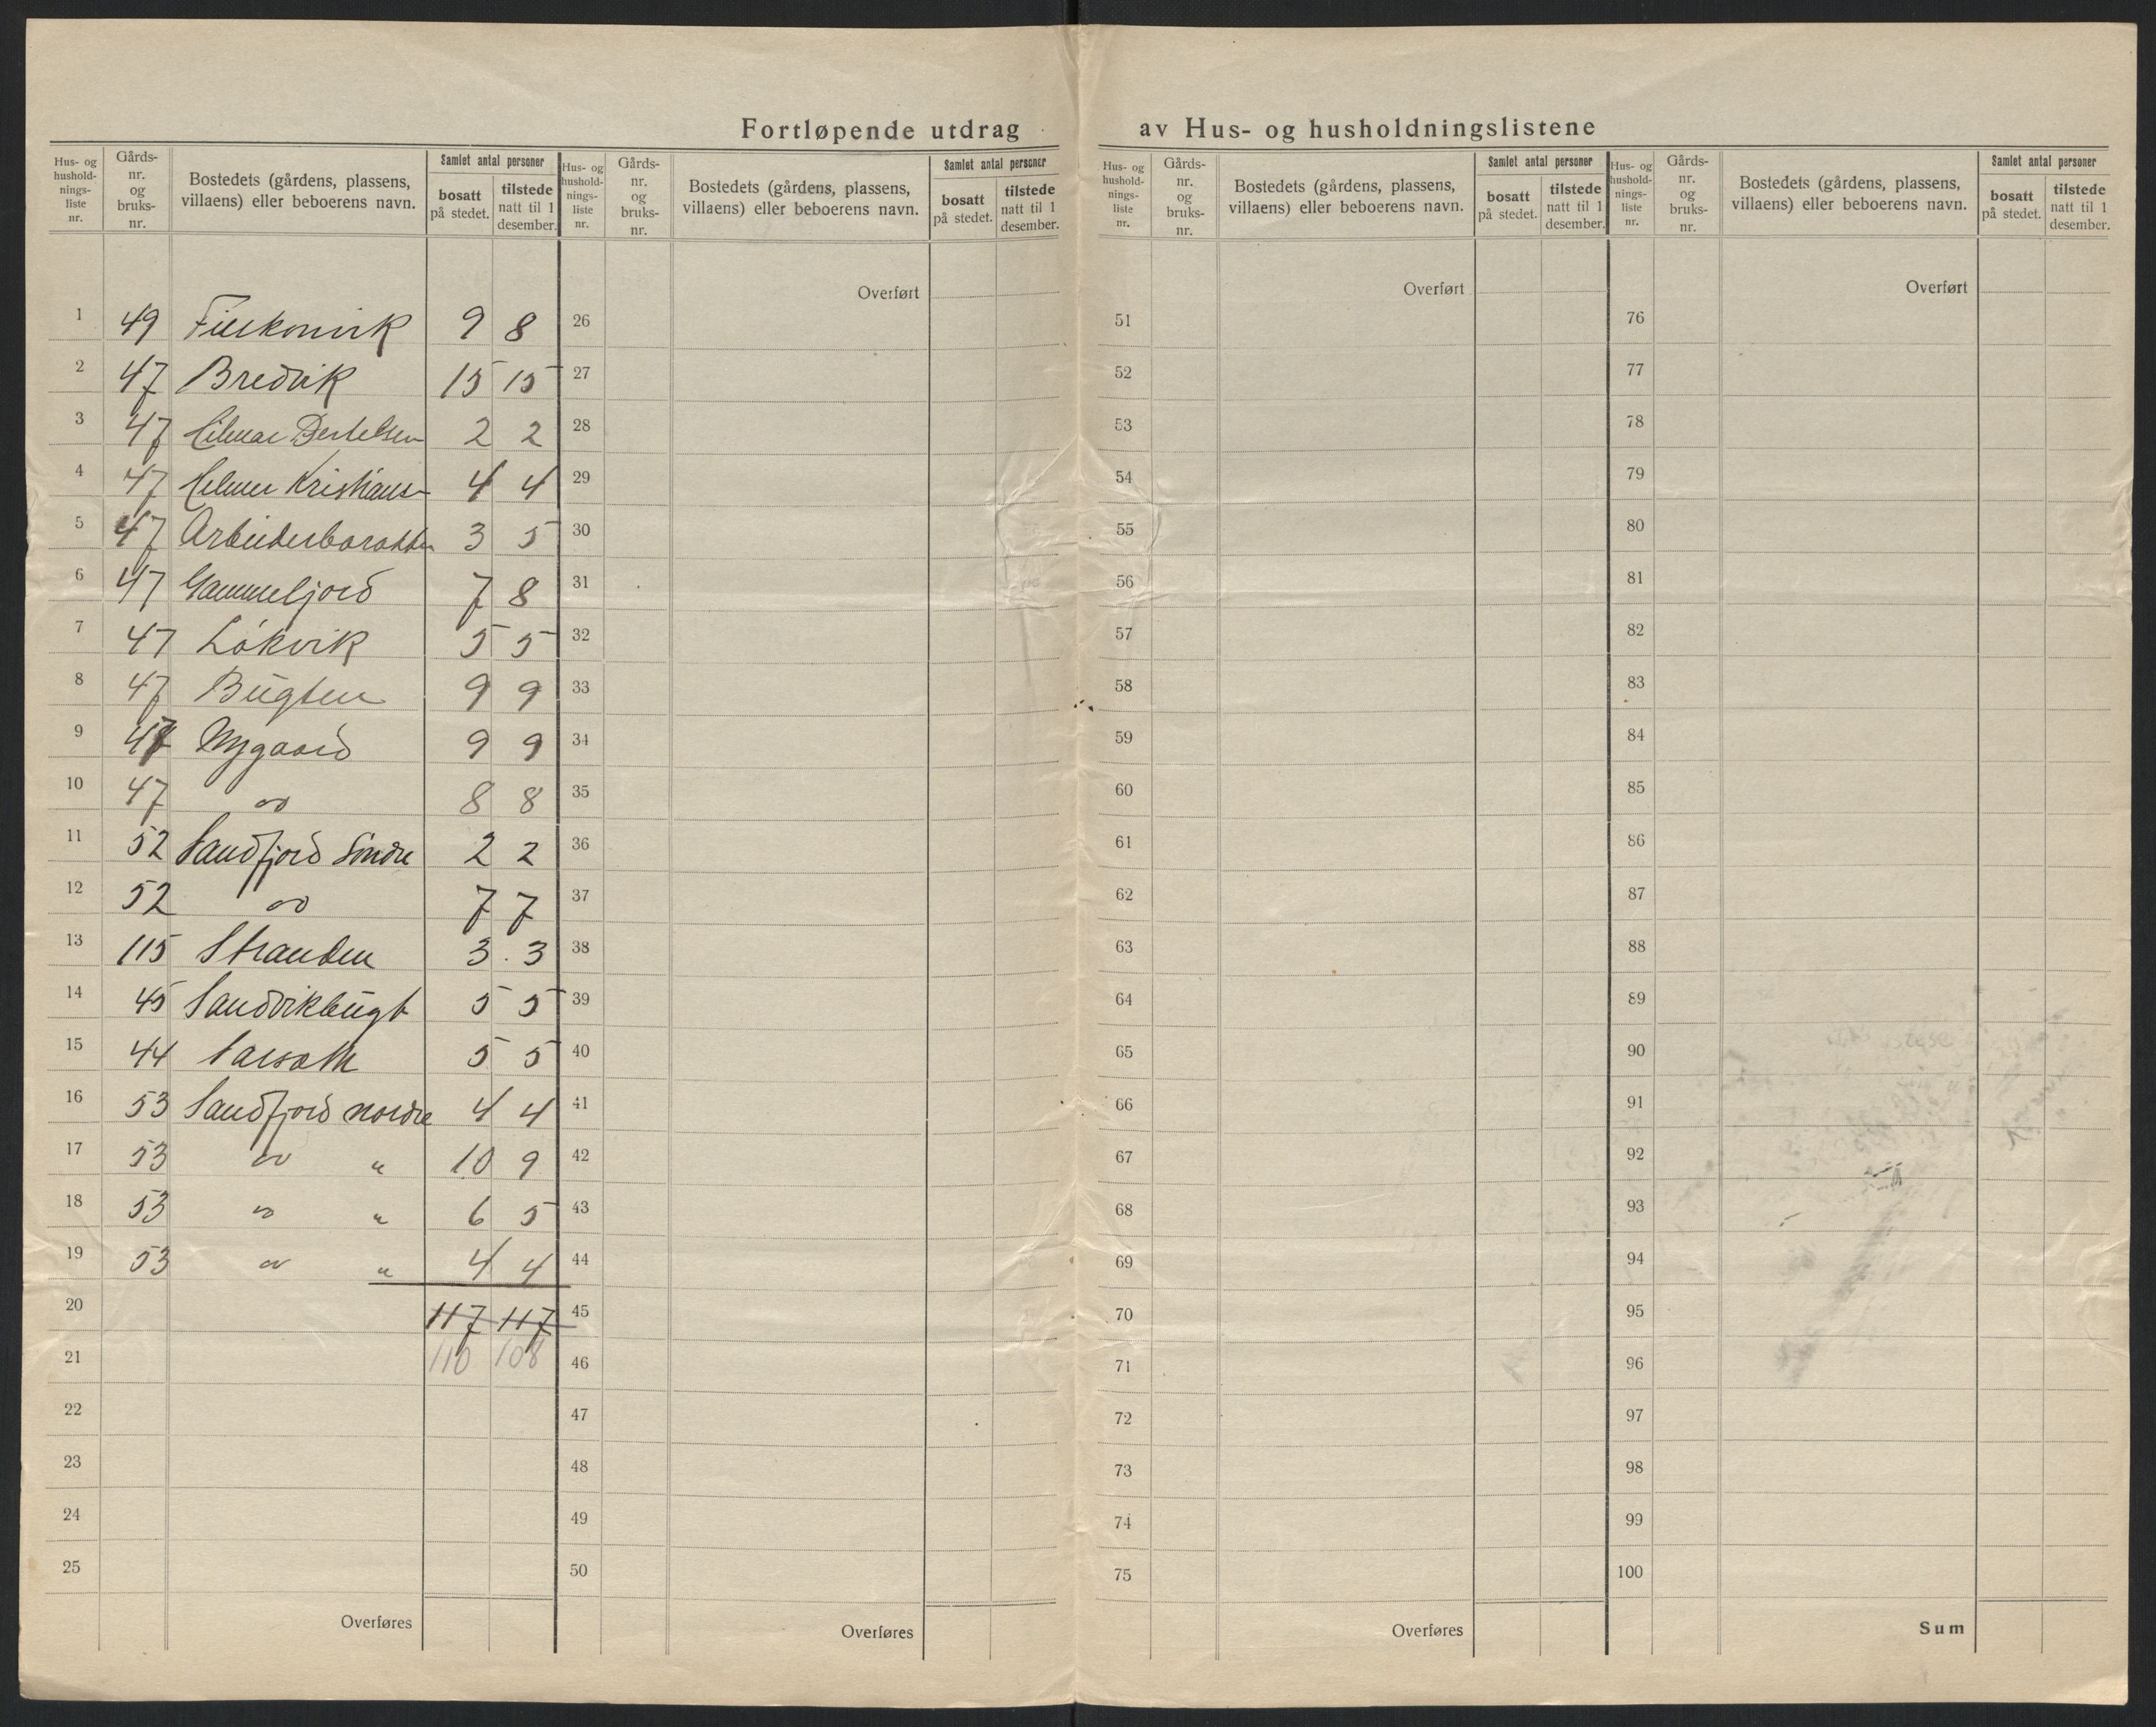 Fortløpende utdrag av Hus- og husholdningslistene
Hus- og husholdningsliste nr. Gårds-nr. og bruks-nr. Bostedets (gårdens, plassens, villaens) eller beboerens navn. Samlet antal personer bosatt på stedet. tilstede natt til 1 desember.
Hus- og husholdningsliste nr. Gårds-nr. og bruks-nr. Bostedets (gårdens, plassens, villaens) eller beboerens navn. Samlet antal personer bosatt på stedet. tilstede natt til 1 desember.
Hus- og husholdningsliste nr. Gårds-nr. og bruks-nr. Bostedets (gårdens, plassens, villaens) eller beboerens navn. Samlet antal personer bosatt på stedet. tilstede natt til 1 desember.
Hus- og husholdningsliste nr. Gårds-nr. og bruks-nr. Bostedets (gårdens, plassens, villaens) eller beboerens navn. Samlet antal personer bosatt på stedet. tilstede natt til 1 desember.
Overført Overført Overført
1 49 9 8 26 51 76
2 47 Bredvik 15 15 27 52 77
3 47 Hilmar 2 2 28 53 78
4 47 Kristians 4 4 29 54 79
5 47 Arbeiderbarakken 3 5 30 55 80
6 47 Gammeljord 7 8 31 56 81
7 47 Løkvik 5 5 32 57 82
8 47 Bugten 9 9 33 58 83
9 47 Nygaard 9 9 34 59 84
10 47 " 8 8 35 60 85
11 52 Sandfjord Søndre 2 2 36 61 86
12 52 " 7 7 37 62 87
13 115 Stranden 3 3 38 63 88
14 45 Sandvikbugt 5 5 39 64 89
15 44 5 5 40 65 90
16 53 Sandfjord nordre 4 4 41 66 91
17 53 " " 10 9 42 67 92
18 53 " " 6 5 43 68 93
19 53 " " 4 4 44 69 94
20 117 117 45 70 95
21 110 108 46 71 96
22 47 72 97
23 48 73 98
24 49 74 99
25 50 75 100
Overføres Overføres Overføres Sum